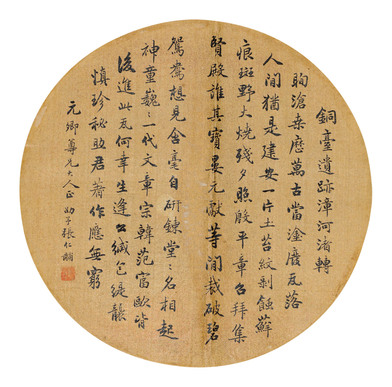 銅臺遺跡漳河渚轉
眴滄桑歷萬古當塗廢瓦落
人間猶是建安一片土苔紋剝蝕蘚
痕斑野火燒殘夕照殷平章召拜集
賢殿誰其寶晏元獻等閒裁破碧
鴛鴦想見含毫自研錬堂〻名相起
神童巍〻一代文章宗韓范富歐皆
後進此瓦何幸生逢公緘包緹襲
慎珍秘助君著作應無窮
元卿尊兄大人正 劭予張仁黼